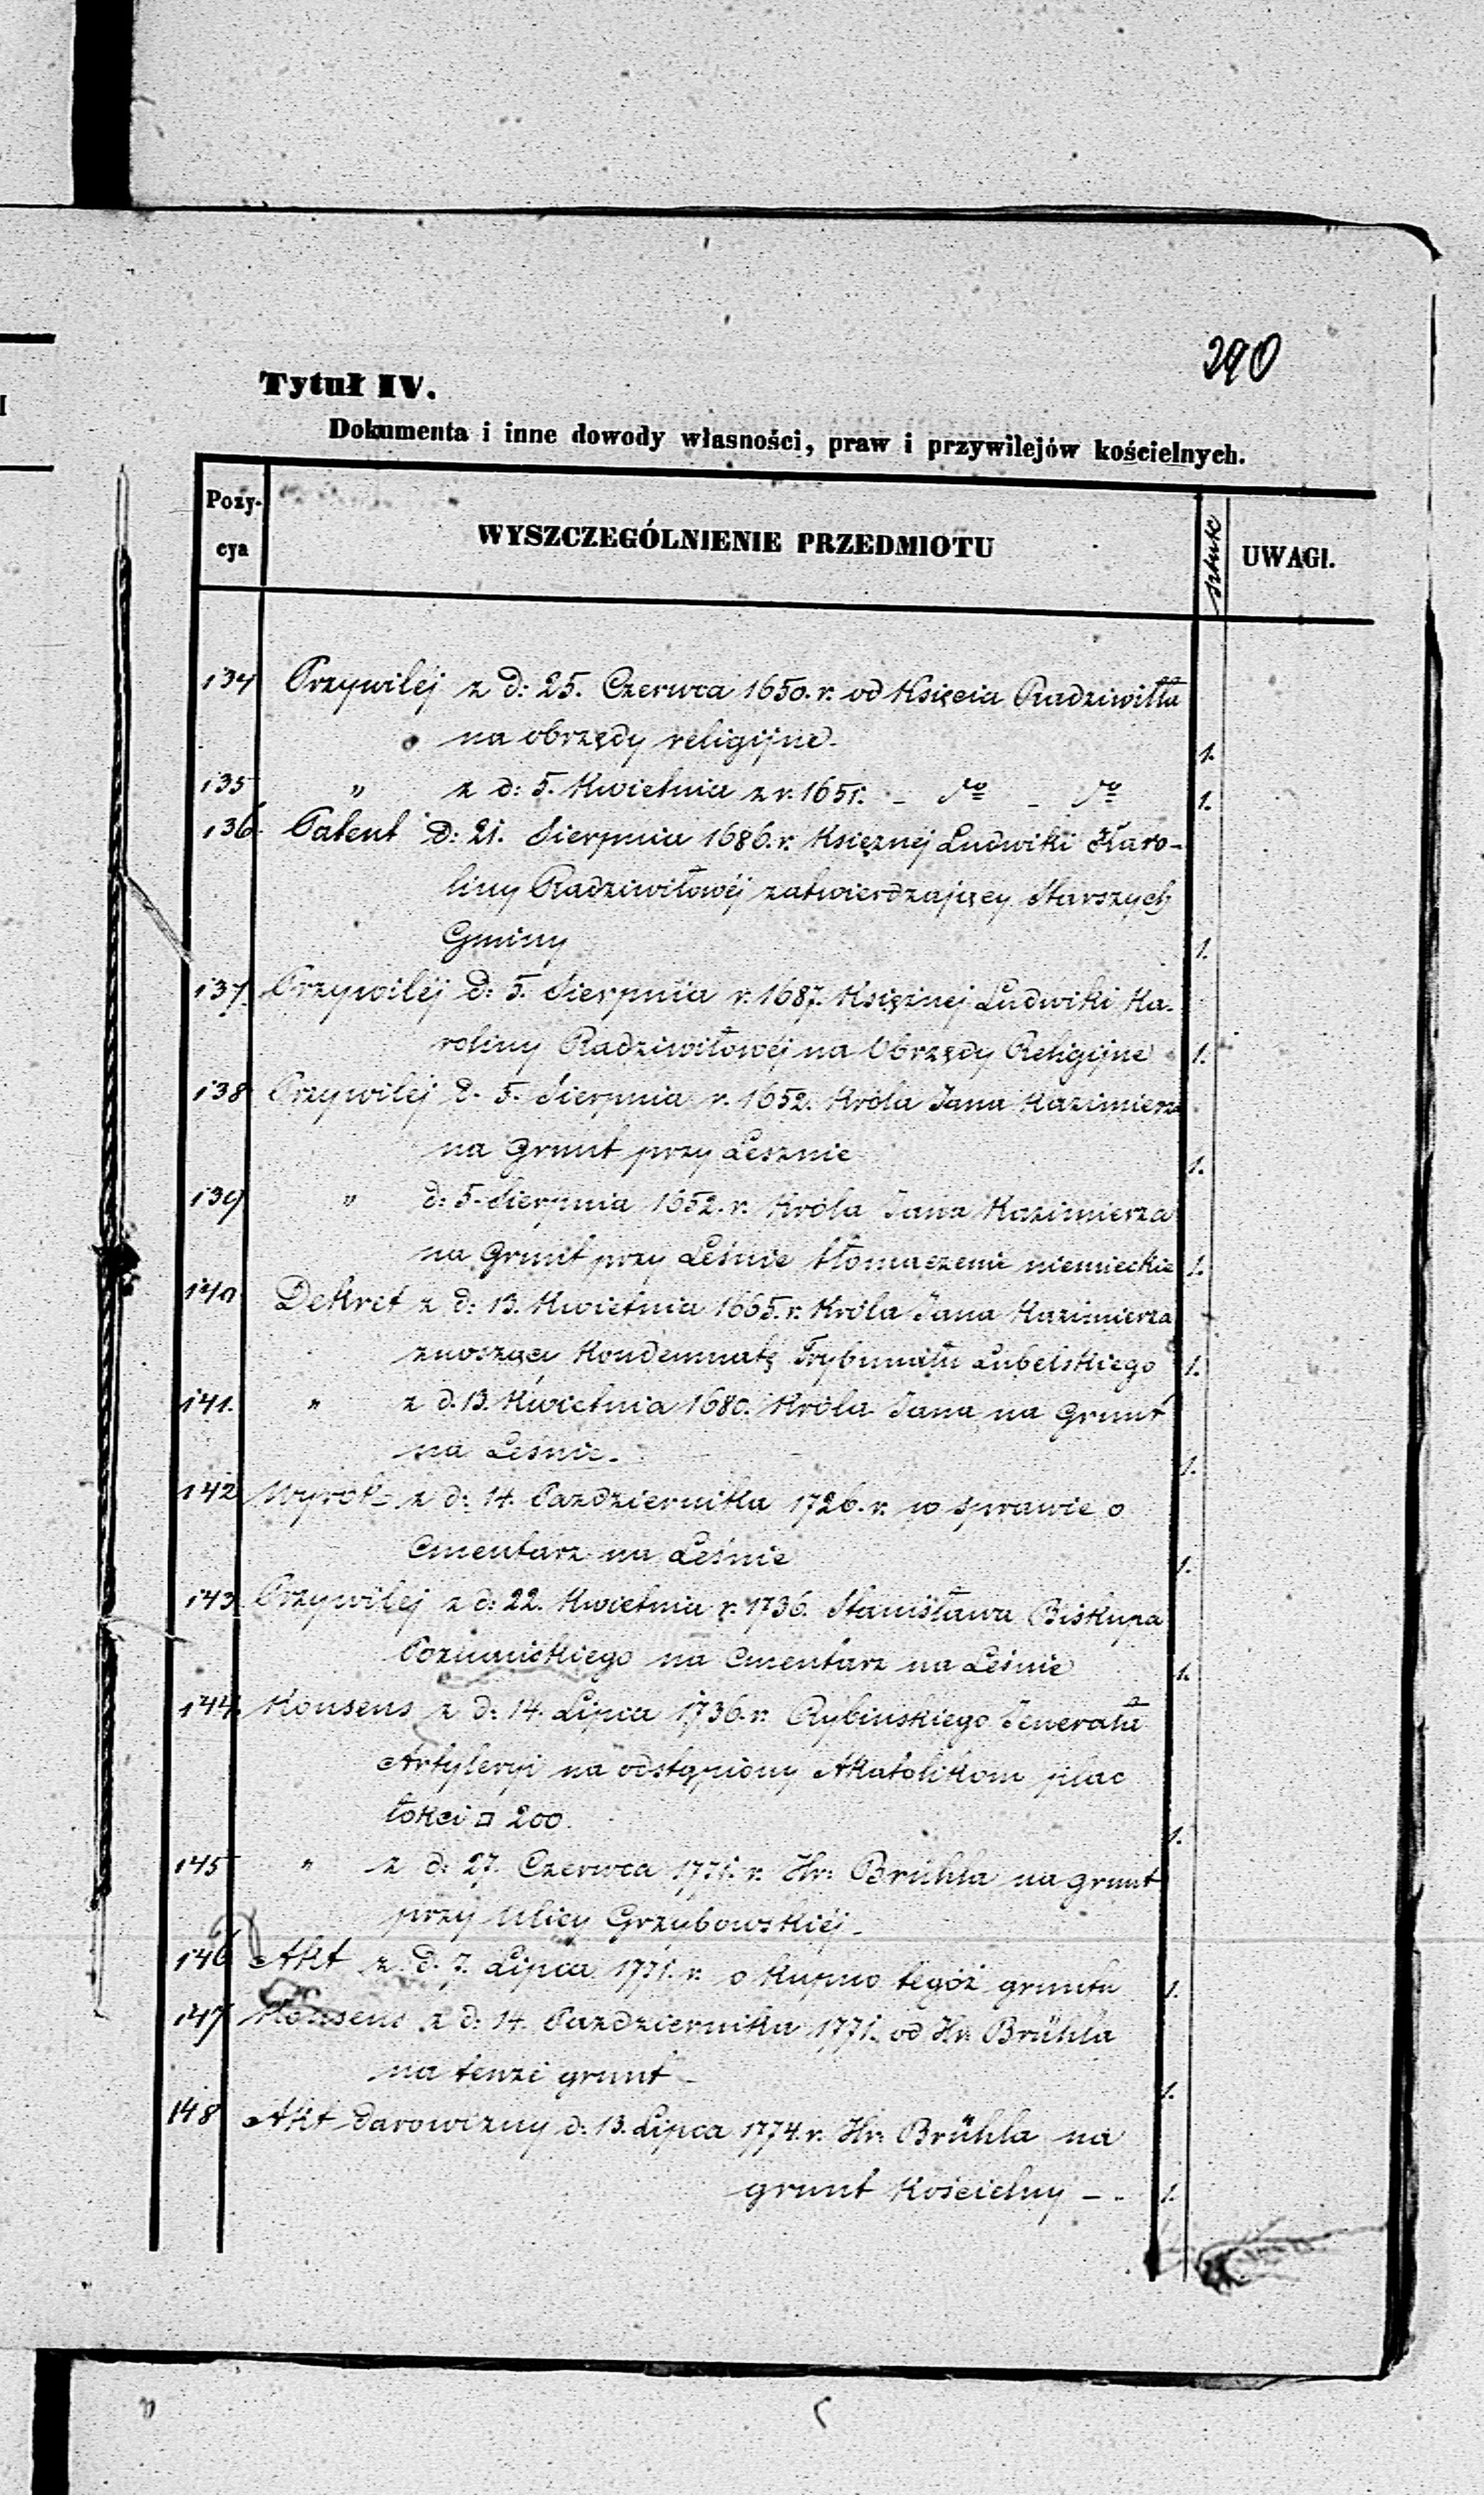 290
Tytuł IV.
Dokumenta i inne dowody własności, praw i przywilejów kościelnych.
Pozy-
cya
WYSZCZEGÓLNIENIE PRZEDMIOTU
sztuk
UWAGI.
134 Przywilej z d: 25. Czerwca 1650. r. od Księcia Radziwiłła
na obrzędy religijne. 1.
135 " z d: 5. Kwietnia z r. 1651. - do - do 1.
136. Patent d: 21. Sierpnia 1686. r. Księżnej Ludwiki Karo-
liny Radziwiłowéj zatwierdzający Starszych
Gminy 1.
137. Przywiléj d: 5. Sierpnia r. 1687. Księżnej Ludwiki Ka-
roliny Radziwiłowéj na Obrzędy Religijne 1.
138 Przywiléj d. 5. Sierpnia r. 1652. Króla Jana Kazimierza
na Grunt przy Lesznie 1.
139 " d: 5. Sierpnia 1652. r. Króla Jana Kazimierza
na Grunt przy Leśnie tłomaczenie niemieckie 1.
140. Dekret z d: 13. Kwietnia 1665. r. Króla Jana Kazimierza
znoszący Kondemnatę Trybunału Lubelskiego 1.
141. " z d. 13. Kwietnia 1680. Króla Jana na Grunt
na Leśnie. 1.
142 Wyrok - z d: 14. Października 1726. r. w sprawie o
Cmentarz na Leśnie 1.
143 Przywiléj z d: 22. Kwietnia r. 1736. Stanisława Biskupa
Poznańskiego na Cmentarz na Leśnie 1.
144. Konsens z d: 14. Lipca 1736. r. Rybińskiego Jenerała
Artyleryi na odstąpiony Akatolikom plac
łokci □ 200. 1.
145 " z d: 27. Czerwca 1771. r. Hr: Brühla na grunt
przy Ulicy Grzybowskiéj -
146 Akt z. d. 7. Lipca 1771. r. o Kupno tegóż gruntu 1.
147 Konsens z d: 14. Października 1771. od Hr: Brühla
na tenże grunt - 1.
148 Akt darowizny d: 13. Lipca 1774. r. Hr: Brühla na
grunt Kościelny - . 1.